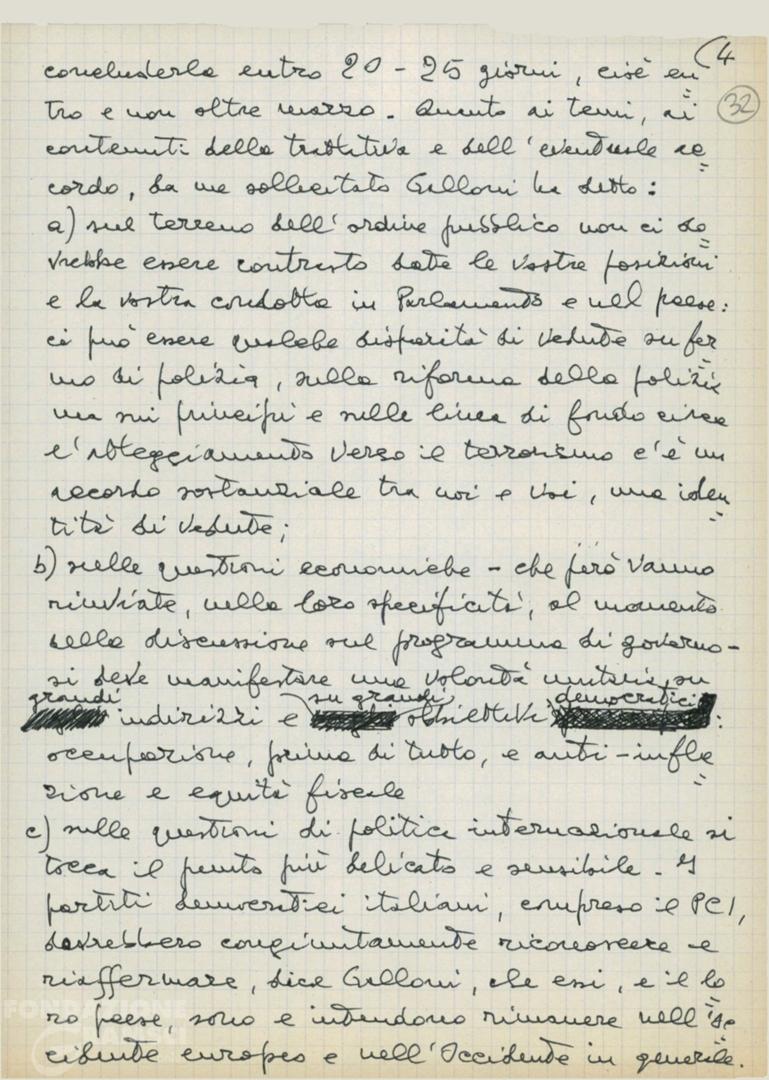 (4
32
concluderla entro 20 - 25 giorni, cioè en
tro e non oltre marzo. Quanto ai temi, ai
contenuti della trattativa e dell'eventuale ac
cordo, da me sollecitato Galloni ha detto:
a) sul terreno dell'ordine pubblico non ci do
vrebbe essere contrasto date le vostre posizioni
e la vostra condotta in Parlamento e nel paese:
ci può essere qualche disparità di vedute su fer
mo di polizia, sulla riforma della polizia
ma sui principi e sulle linea di fondo circa
l'atteggiamento verso il terrorismo c'è un
accordo sostanziale tra noi e voi, una iden
tità di vedute;
b) sulle questioni economiche - che però vanno
rinviate, nella loro specificità, al momento
della discussione sul programma di governo -
si deve manifestare una volontà unitaria su
grandi indirizzi e su grandi obbiettivi democratici:
occupazione, prima di tutto, e anti-infla
zione e equità fiscale
c) sulle questioni di politica internazionale si
tocca il punto più delicato e sensibile. I
partiti democratici italiani, compreso il PCI,
dovrebbero congiuntamente riconoscere e
riaffermare, dice Galloni, che essi, e il lo
ro paese, sono e intendono rimanere nell'oc
cidente europeo e nell'Occidente in generale.
FONDAZIONE